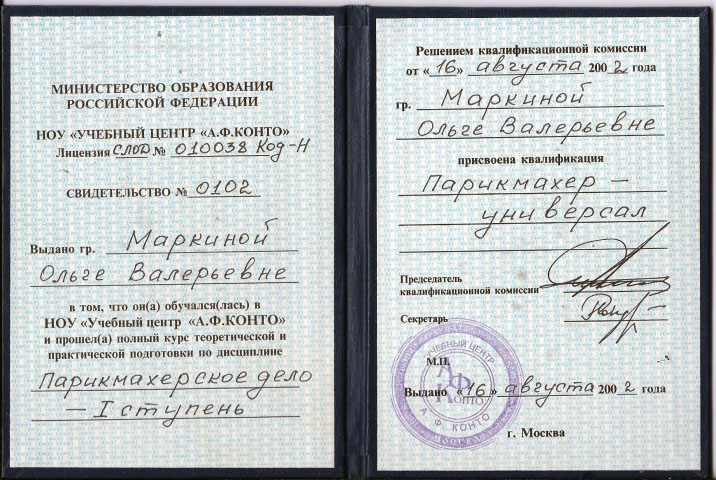 МИНИСТЕРСТВО ОБРАЗОВАНИЯ
РОССИЙСКОЙ ФЕДЕРАЦИИ
НОУ «УЧЕБНЫЙ ЦЕНТР «А.Ф.КОНТО»
Лицензия СЛОД № 010038 Код-Н
СВИДЕТЕЛЬСТВО № 0102
Выдано гр. Маркиной
Ольге Валерьевне
в том, что он(а) обучался(лась) в
НОУ «Учебный центр «А.Ф.КОНТО»
и прошел(а) полный курс теоретической и
практической подготовки по дисциплине
Парикмахерское дело
– I ступень
Решением квалификационной комиссии
от «16» августа 2002 года
гр. Маркиной
Ольге Валерьевне
присвоена квалификация
Парикмахер –
универсал
Председатель
квалификационной комиссии
Секретарь
М.П.
УЧЕБНЫЙ ЦЕНТР
АФ
Конто
А. Ф. КОНТО
МОСКВА
Выдано «16» августа 2002 года
г. Москва